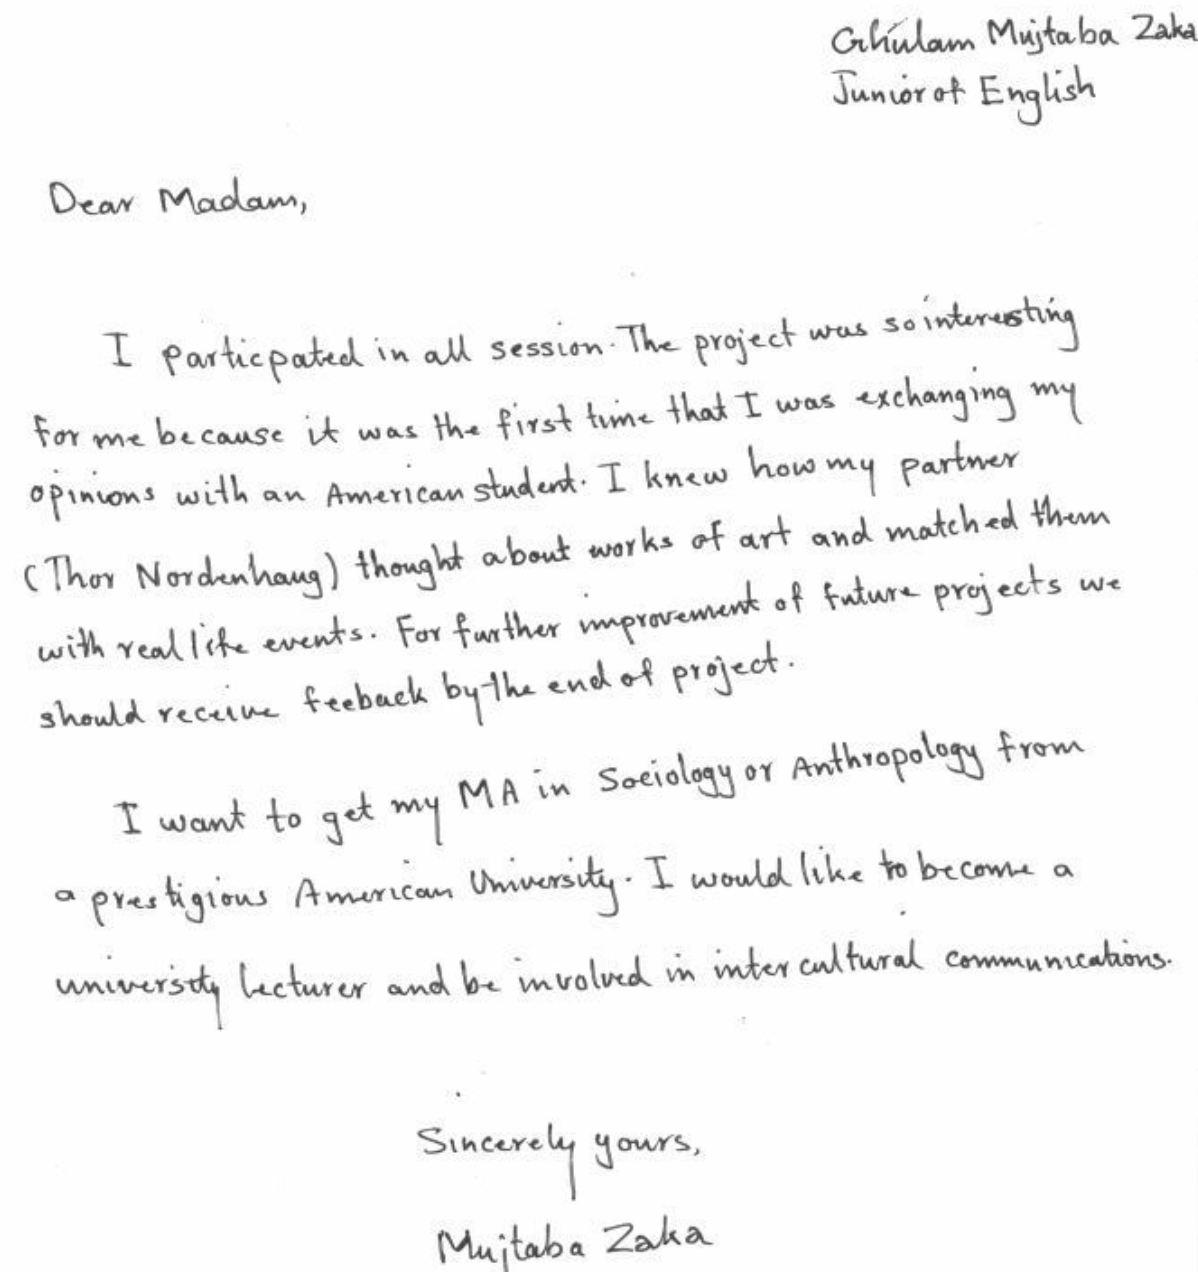 Ghulam Mujtaba Zaka
Junior of English
Dear Madam,
I particpated in all session. The project was so interesting
for me because it was the first time that I was exchanging my
opinions with an American student. I knew how my partner
(Thor Nordenhaug) thought about works of art and matched them
with real life events. For further improvement of future projects we
should receive feeback by the end of project.
I want to get my MA in Sociology or Anthropology from
a prestigious American University. I would like to become a
university lecturer and be involved in intercultural communications.
Sincerely yours,
Mujtaba Zaka